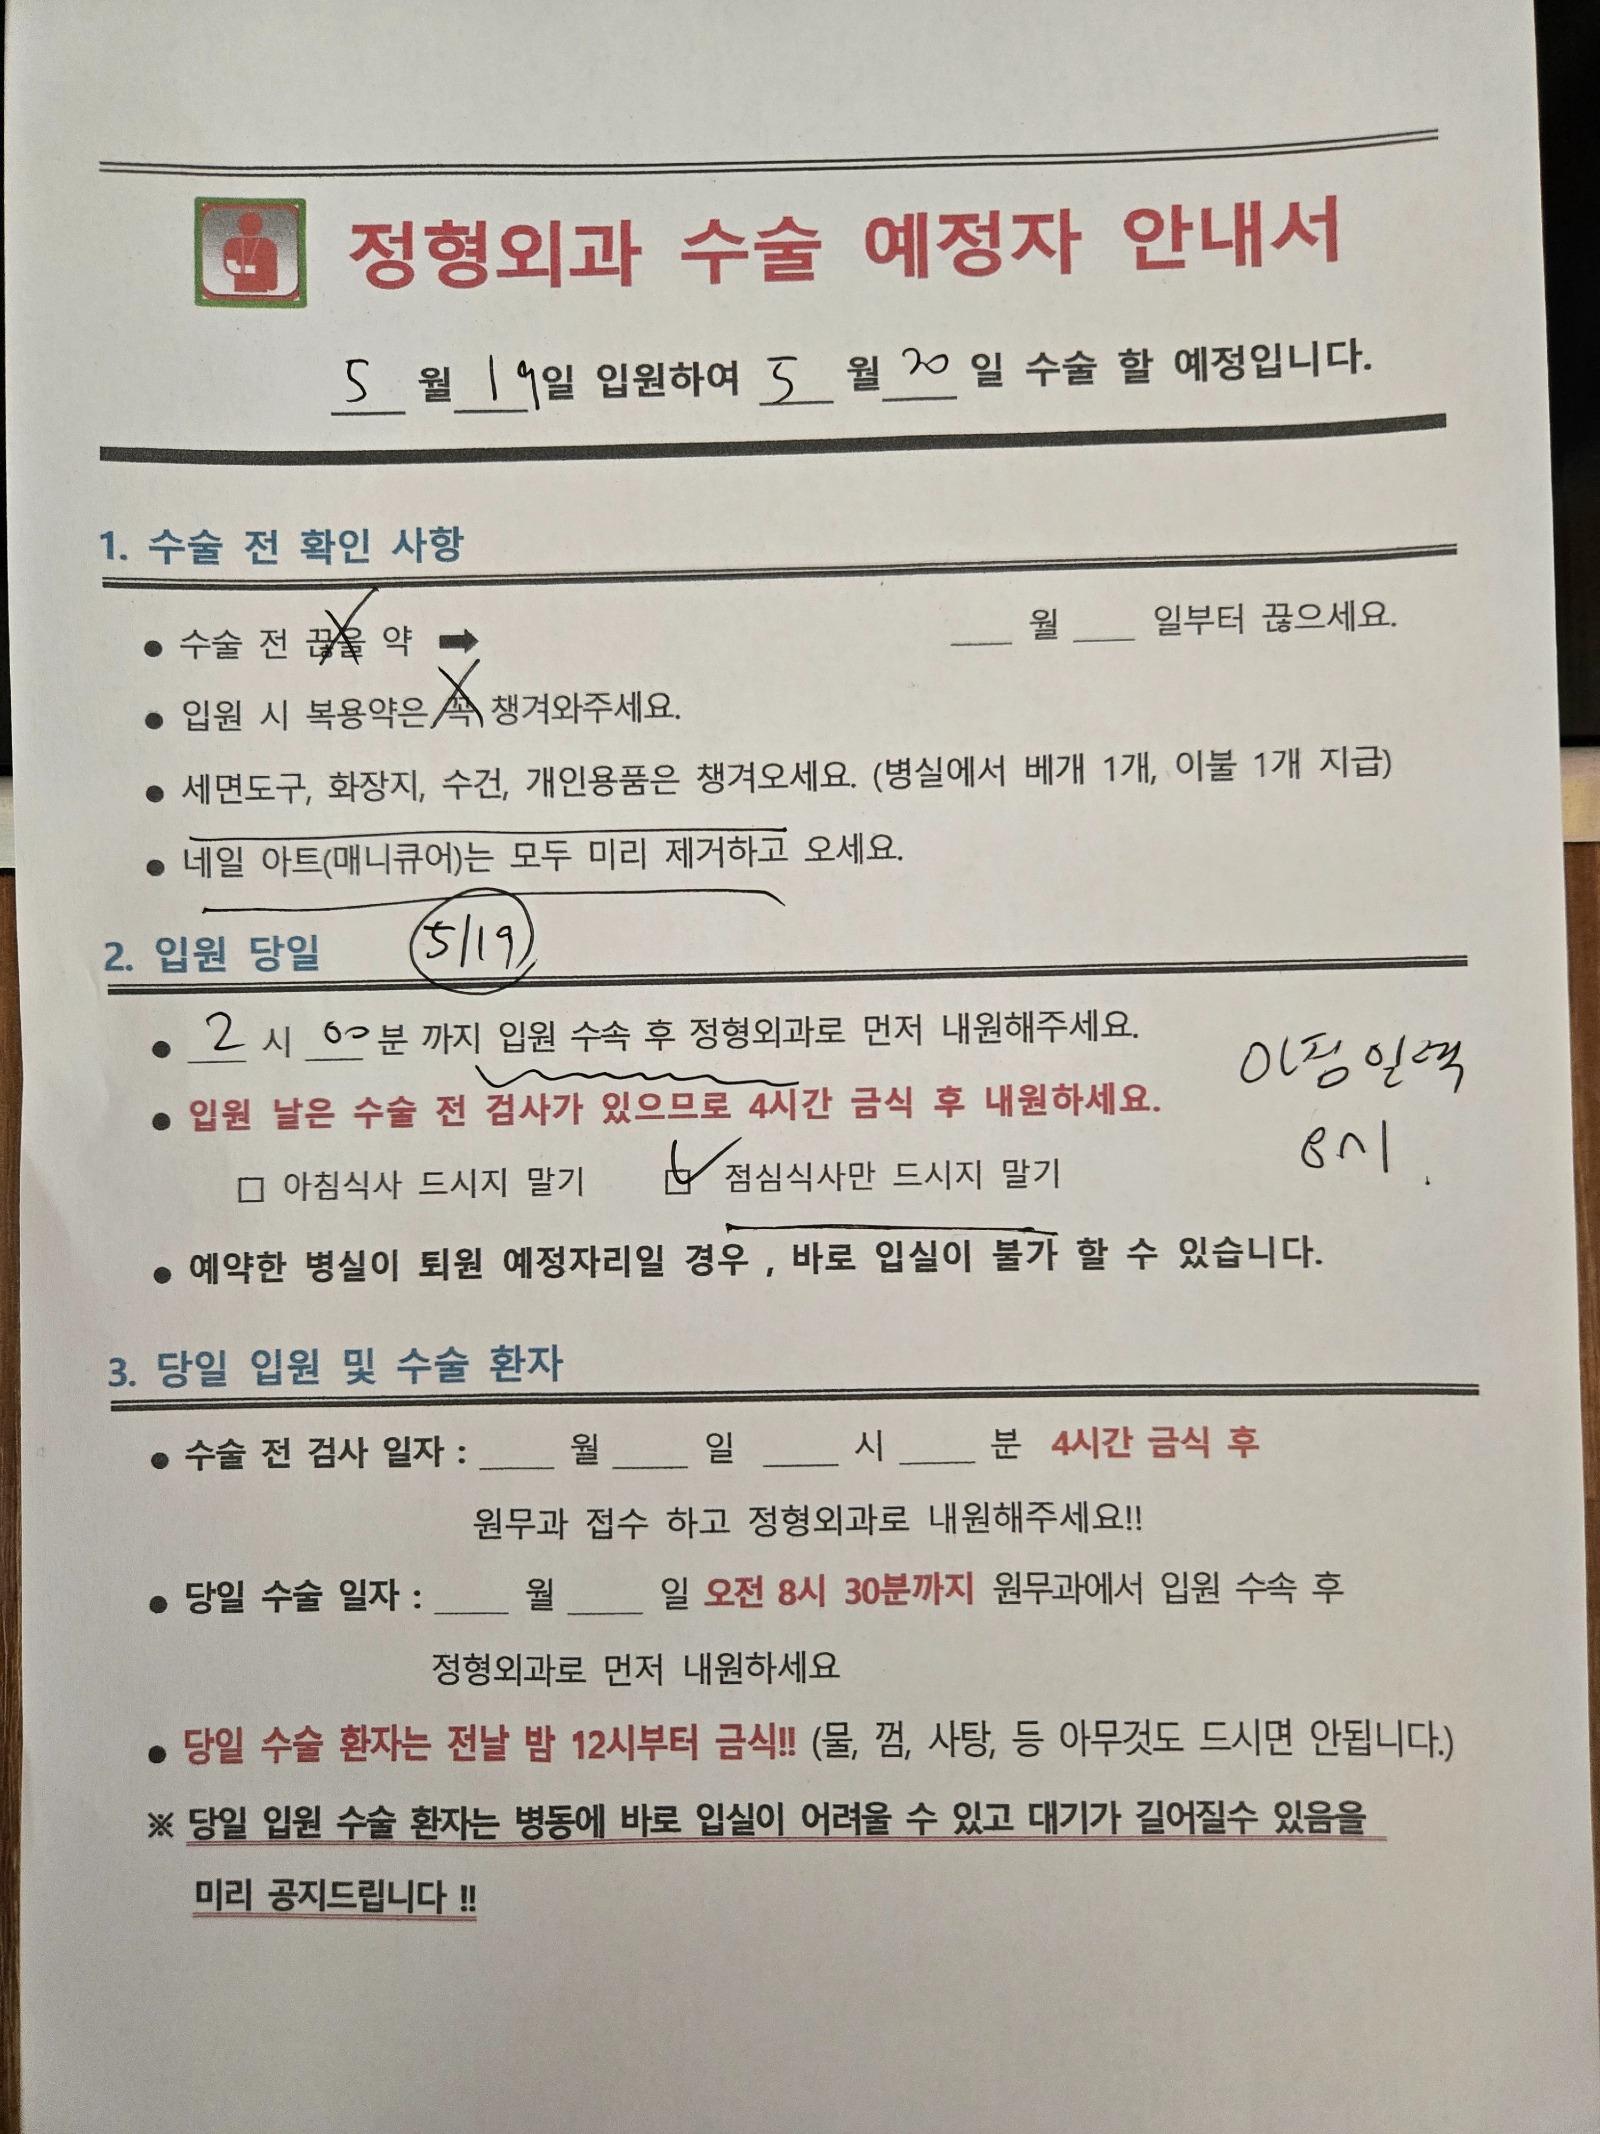 정형외과 수술 예정자 안내서
5 월 19일 입원하여 5 월 20 일 수술 할 예정입니다.
1. 수술 전 확인 사항
● 수술 전 끊을 약 ➡ ___ 월 ___ 일부터 끊으세요.
● 입원 시 복용약은 꼭 챙겨와주세요.
● 세면도구, 화장지, 수건, 개인용품은 챙겨오세요. (병실에서 베개 1개, 이불 1개 지급)
● 네일 아트(매니큐어)는 모두 미리 제거하고 오세요.
2. 입원 당일 5/19
● 2 시 00 분 까지 입원 수속 후 정형외과로 먼저 내원해주세요.
아침 일찍
● 입원 날은 수술 전 검사가 있으므로 4시간 금식 후 내원하세요.
8시
□ 아침식사 드시지 말기 ☑ 점심식사만 드시지 말기
● 예약한 병실이 퇴원 예정자리일 경우 , 바로 입실이 불가 할 수 있습니다.
3. 당일 입원 및 수술 환자
● 수술 전 검사 일자 : ____ 월 ____ 일 ____ 시 ____ 분 4시간 금식 후
원무과 접수 하고 정형외과로 내원해주세요!!
● 당일 수술 일자 : ____ 월 ____ 일 오전 8시 30분까지 원무과에서 입원 수속 후
정형외과로 먼저 내원하세요
● 당일 수술 환자는 전날 밤 12시부터 금식!! (물, 껌, 사탕, 등 아무것도 드시면 안됩니다.)
※ 당일 입원 수술 환자는 병동에 바로 입실이 어려울 수 있고 대기가 길어질수 있음을
미리 공지드립니다 !!